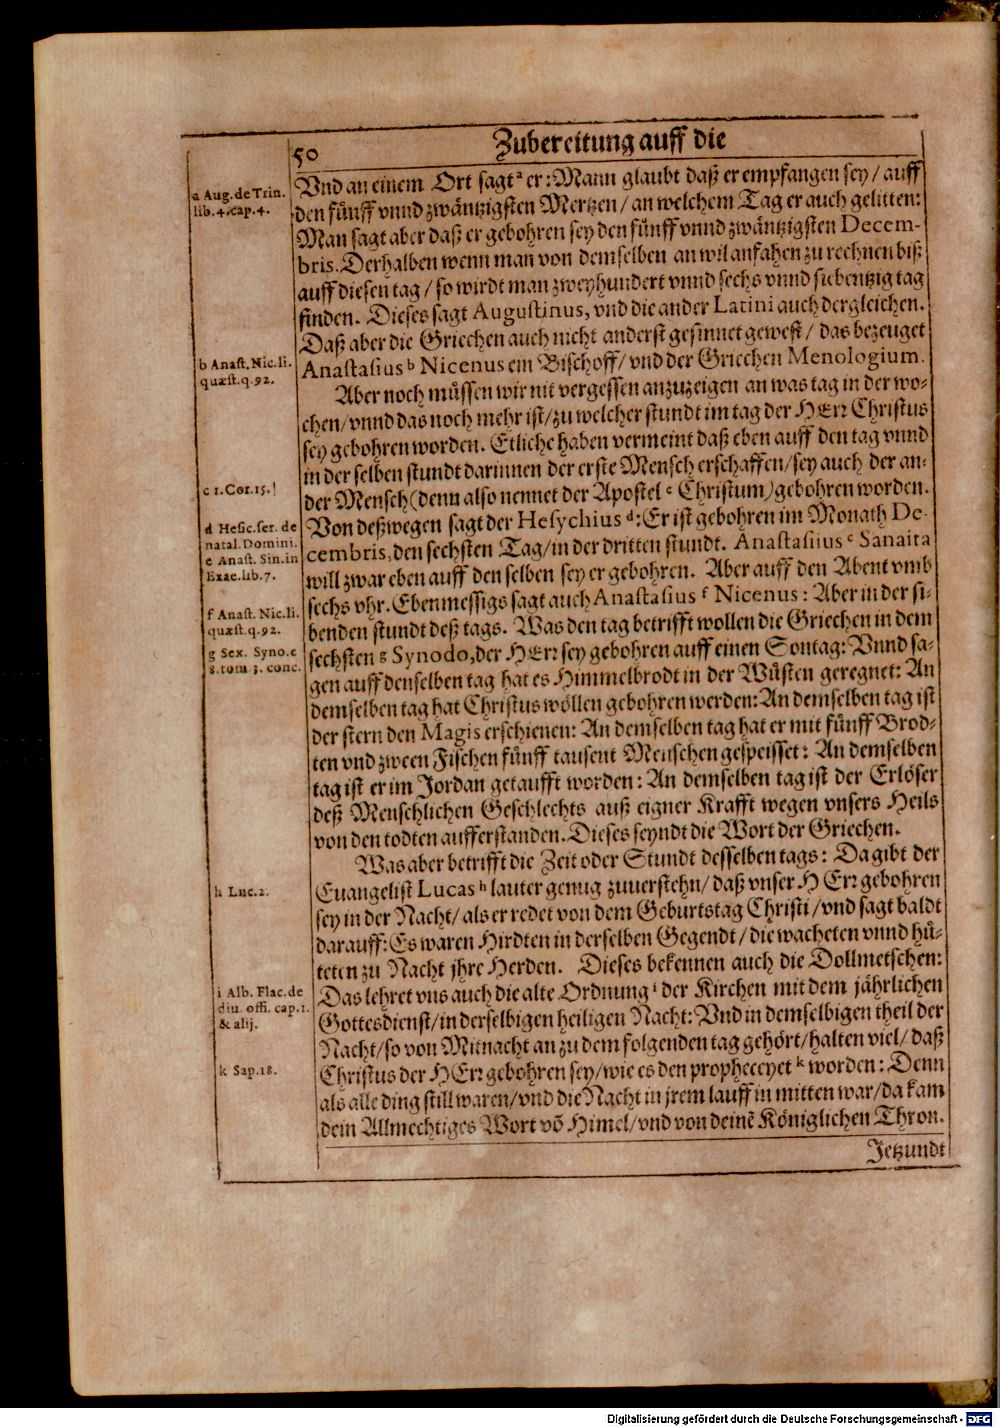 50
Zubereitung auff die
Vnd an einem Ort sagt ᵃ er: Mann glaubt daß er empfangen sey / auff
den fünff vnnd zwäntzigsten Mertzen / an welchem Tag er auch gelitten:
Man sagt aber daß er gebohren sey den fünff vnnd zwäntzigsten Decem-
bris. Derhalben wenn man von demselben an wil anfahen zu rechnen biß
auff diesen tag / so wirdt man zweyhundert vnnd sechs vnnd siebentzig tag
finden. Dieses sagt Augustinus, vnd die ander Latini auch dergleichen.
Daß aber die Griechen auch nicht anderst gesinnet gewest / das bezeuget
Anastasius ᵇ Nicenus ein Bischoff / vnd der Griechen Menologium.
Aber noch müssen wir nit vergessen anzuzeigen an was tag in der wo-
chen / vnnd das noch mehr ist / zu welcher stundt im tag der HErr Christus
sey gebohren worden. Etliche haben vermeint daß eben auff den tag vnnd
in der selben stundt darinnen der erste Mensch erschaffen / sey auch der an-
der Mensch (denn also nennet der Apostel ᶜ Christum) gebohren worden.
Von deßwegen sagt der Hesychius ᵈ: Er ist gebohren im Monath De-
cembris, den sechsten Tag / in der dritten stundt. Anastasiius ᵉ Sanaita
will zwar eben auff den selben sey er gebohren. Aber auff den Abent vmb
sechs vhr. Ebenmessigs sagt auch Anastasius ᶠ Nicenus: Aber in der si-
benden stundt deß tags. Was den tag betrifft wollen die Griechen in dem
sechsten ᵍ Synodo, der HErr sey gebohren auff einen Sontag: Vnnd sa-
gen auff denselben tag hat es Himmelbrodt in der Wüsten geregnet: An
demselben tag hat Christus wöllen gebohren werden: An demselben tag ist
der stern den Magis erschienen: An demselben tag hat er mit fünff Brod-
ten vnd zween Fischen fünff tausent Menschen gespeisset: An demselben
tag ist er im Jordan getaufft worden: An demselben tag ist der Erlöser
deß Menschlichen Geschlechts auß eigner Krafft wegen vnsers Heils
von den todten aufferstanden. Dieses seyndt die Wort der Griechen.
Was aber betrifft die Zeit oder Stundt desselben tags: Da gibt der
Euangelist Lucas ʰ lauter genug zuuerstehn / daß vnser HErr gebohren
sey in der Nacht / als er redet von dem Geburtstag Christi / vnd sagt baldt
darauff: Es waren Hirdten in derselben Gegendt / die wacheten vnnd hü-
teten zu Nacht jhre Herden. Dieses bekennen auch die Dollmetschen:
Das lehret vns auch die alte Ordnung ⁱ der Kirchen mit dem jährlichen
Gottesdienst / in derselbigen heiligen Nacht: Vnd in demselbigen theil der
Nacht / so von Mitnacht an zu dem folgenden tag gehört / halten viel / daß
Christus der HErr gebohren sey / wie es den propheceyet ᵏ worden: Denn
als alle ding still waren / vnd die Nacht in jrem lauff in mitten war / da kam
dein Allmechtiges Wort võ Himel / vnd von deinẽ Königlichen Thron.
Jetzundt
a Aug. de Trin.
lib. 4. cap. 4.
b Anast. Nic. li.
quæst. q. 92.
c 1. Cor. 15.
d Hesic. ser. de
natal. Domini.
e Anast. Sin. in
Exae. lib. 7.
f Anast. Nic. li.
quæst. q. 92.
g Sex. Syno. e
8. tom 3. conc.
h Luc. 2.
i Alb. Flac. de
diu. offi. cap. 1.
& alij.
k Sap. 18.
Digitalisierung gefördert durch die Deutsche Forschungsgemeinschaft - DFG